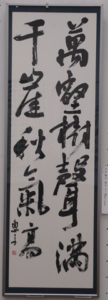 萬壑樹聲滿
千崖秋氣高